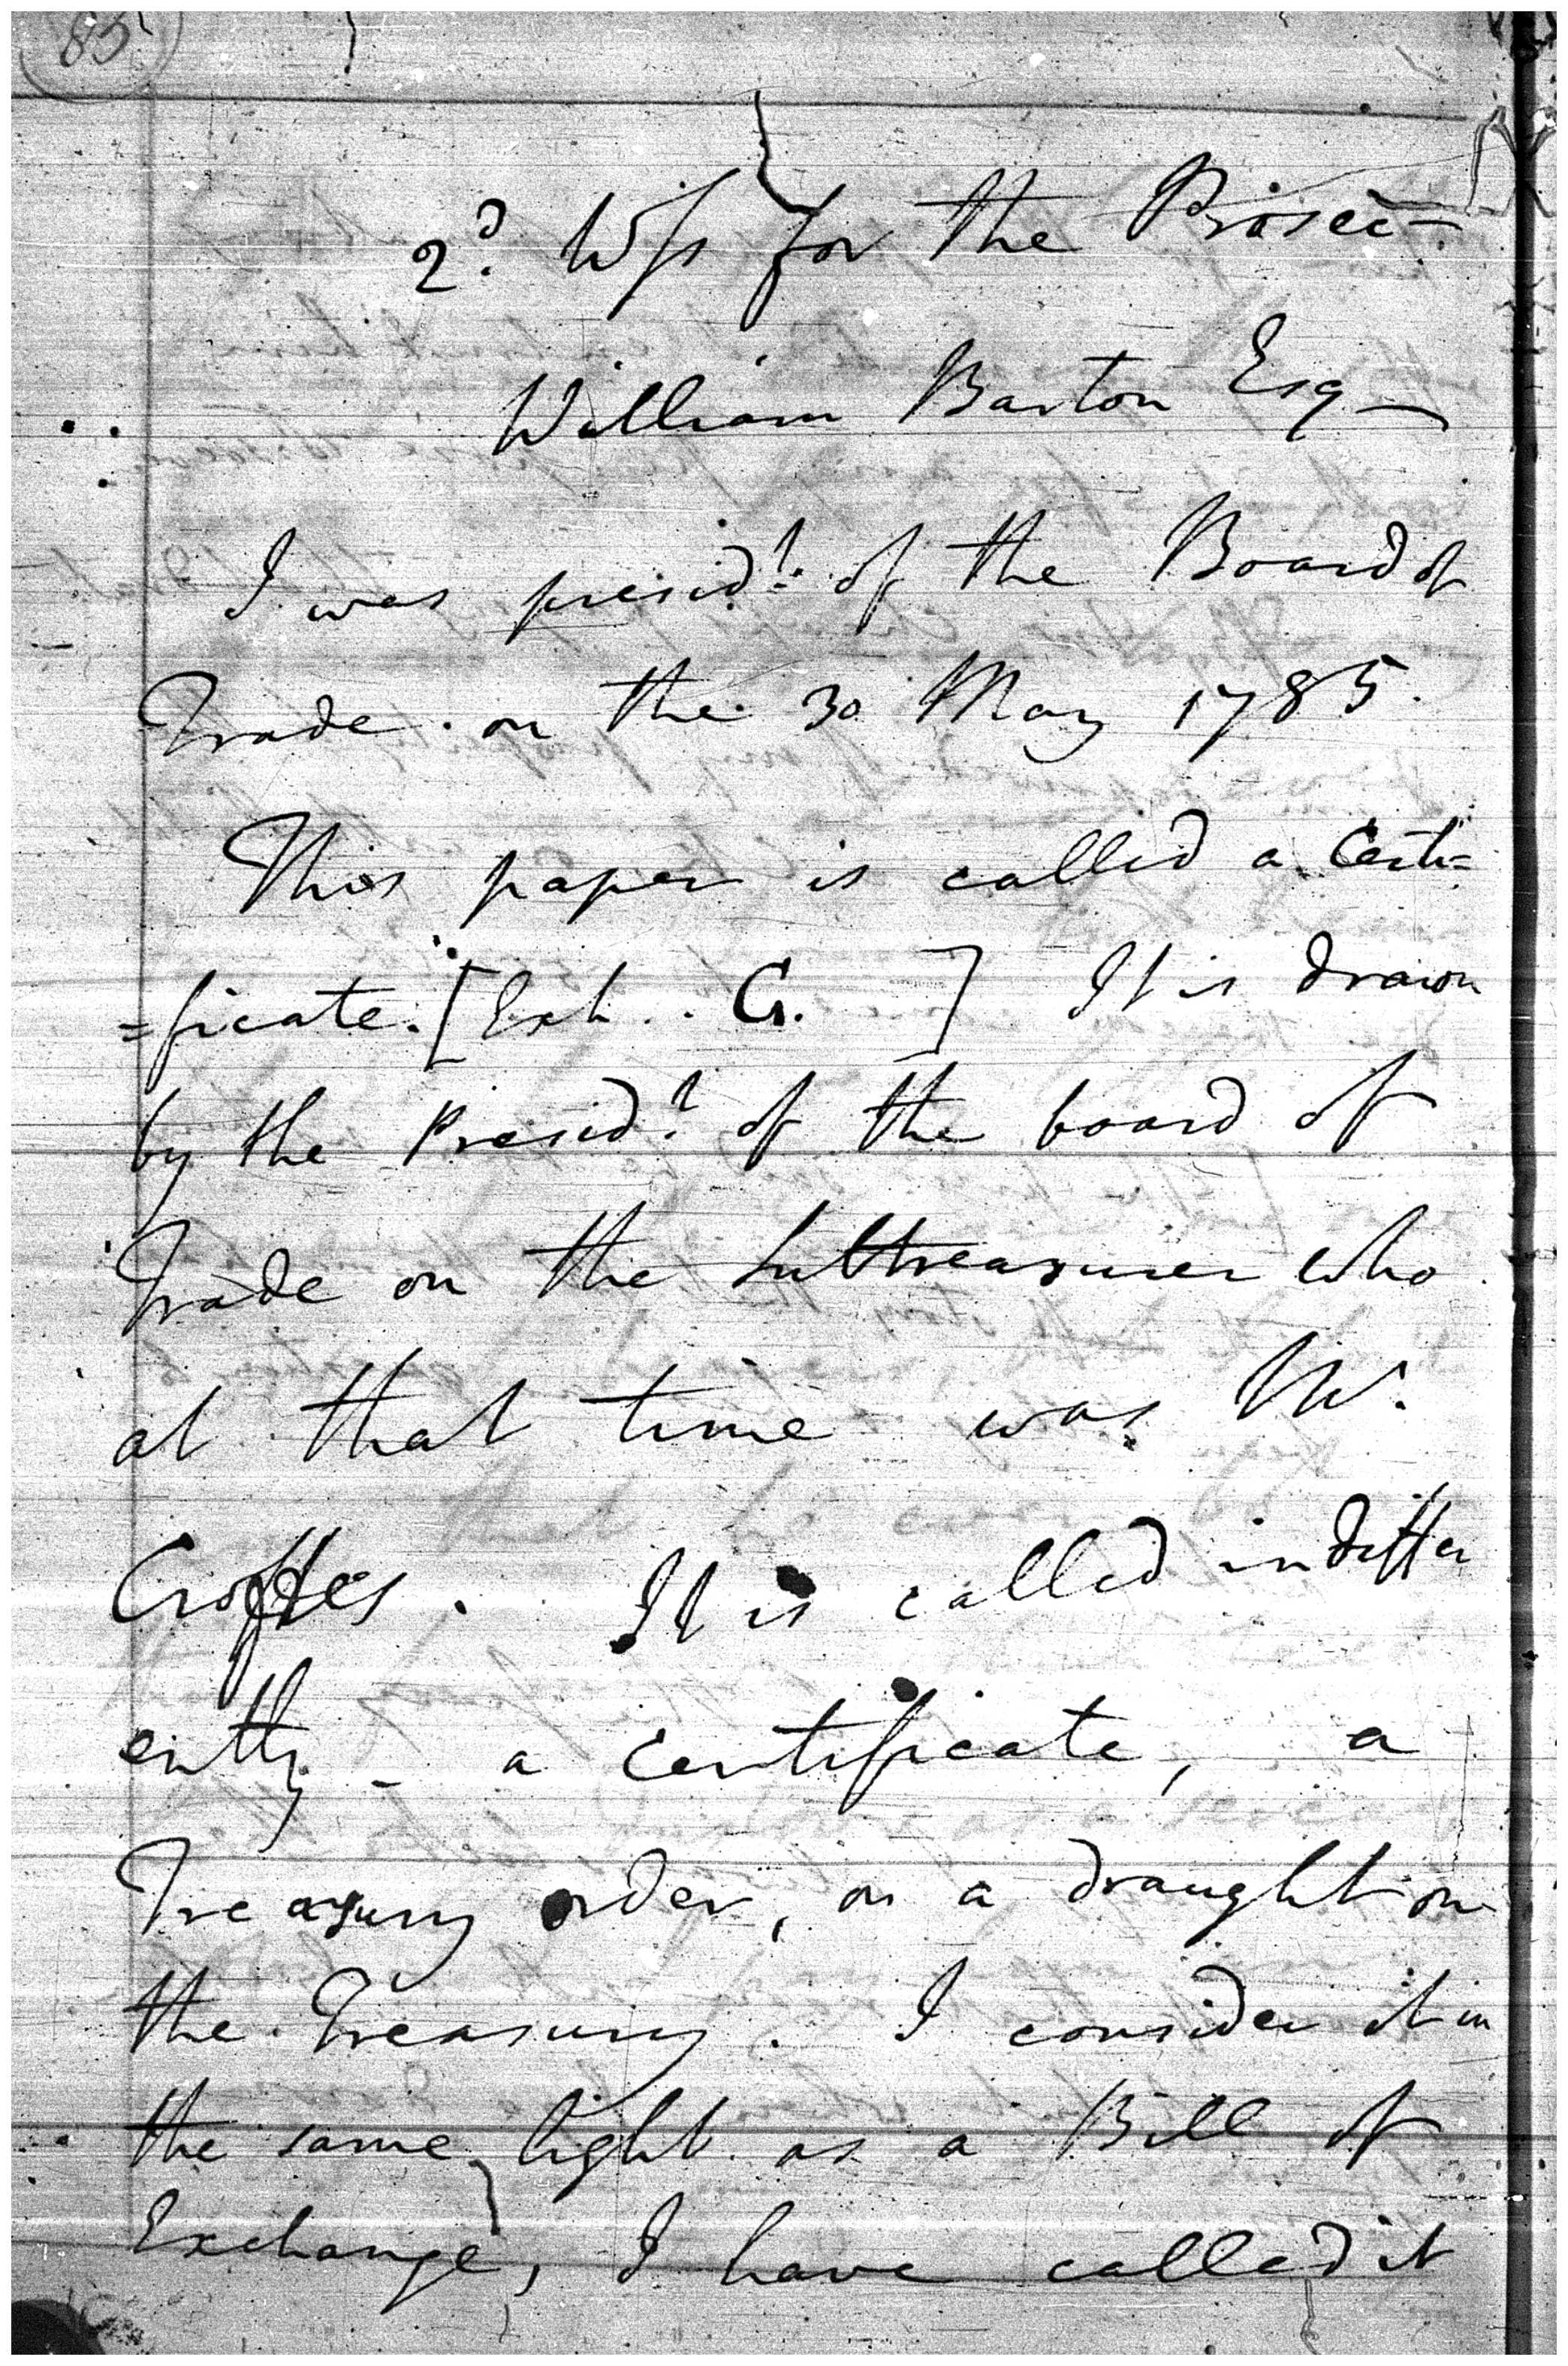 85
2.d Wss for the Prosec-
William Barton Esq
I was presid.t of the Board of
Trade. on the 30 May 1785.
This paper is called a Certi=
=ficate. [Exh.. G. ] It is drawn
by the Presid.t of the board of
Trade on the Subtreasurer who
at that time was Mr.
Croftes. It is called indiffer
ently - a Certificate, a
Treasury order, or a draught on
the Treasury. I consider it in
the same light as a Bill of
Exchange, I have called it